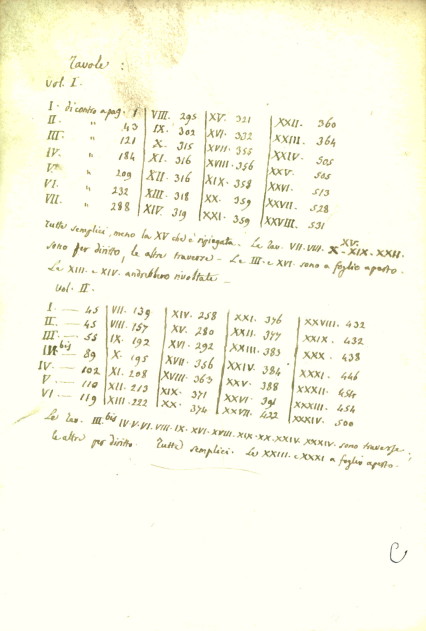 Tavole :
Vol. I.
I. di contro a pag. 1 VIII. 295 XV. 321 XXII. 360
II. " 43 IX. 302 XVI. 332 XXIII. 364
III. " 121 X. 315 XVII. 355 XXIV. 505
IV. " 184 XI. 316 XVIII. 356 XXV. 505
V. " 209 XII. 316 XIX. 358 XXVI. 513
VI. " 232 XIII. 318 XX. 359 XXVII. 528
VII. " 288 XIV. 319 XXI. 359 XXVIII. 531
Tutte semplici, meno la XV che è ripiegata. Le tav. VII. VIII. X. XV. XIX. XXII.
sono per diritto, le altre traverse. – Le III e XVI sono a foglio aperto.
Le XIII e XIV andrebbero rivoltate –
Vol. II.
I — 45 VII. 139 XIV. 258 XXI. 376 XXVIII. 432
II — 45 VIII. 157 XV. 280 XXII. 377 XXIX. 432
III — 55 IX. 192 XVI. 292 XXIII. 383 XXX. 438
III bis — 89 X. 195 XVII. 356 XXIV. 384 XXXI. 446
IV — 102 XI. 208 XVIII. 363 XXV. 388 XXXII. 454
V — 110 XII. 213 XIX. 371 XXVI. 391 XXXIII. 454
VI — 119 XIII. 222 XX. 374 XXVII. 422 XXXIV. 500
Le tav. III. bis IV. V. VI. VIII. IX. XVI. XVIII. XIX. XX. XXIV. XXXIV. sono traverse;
le altre per diritto. Tutte semplici. Le XXIII. e XXXI a foglio aperto.